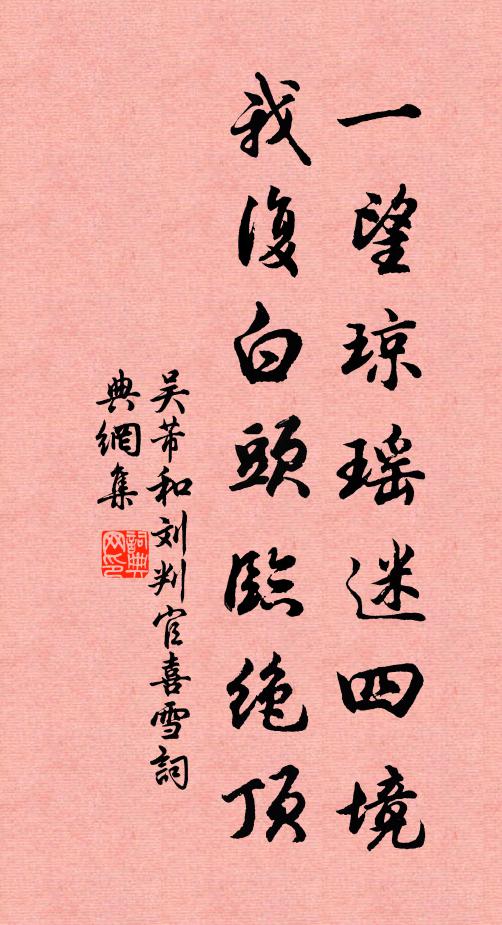 一望琼瑶迷四境
我復白頭臨绝顶
吴芾和刘判官喜雪詞
典網集
詞典网印